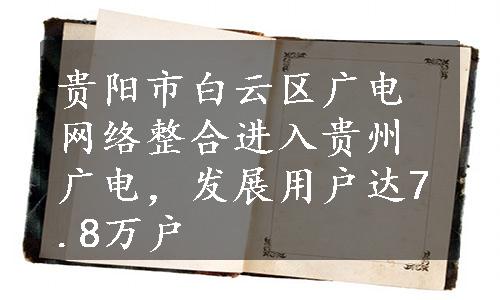 贵阳市白云区广电
网络整合进入贵州
广电，发展用户达7
.8万户